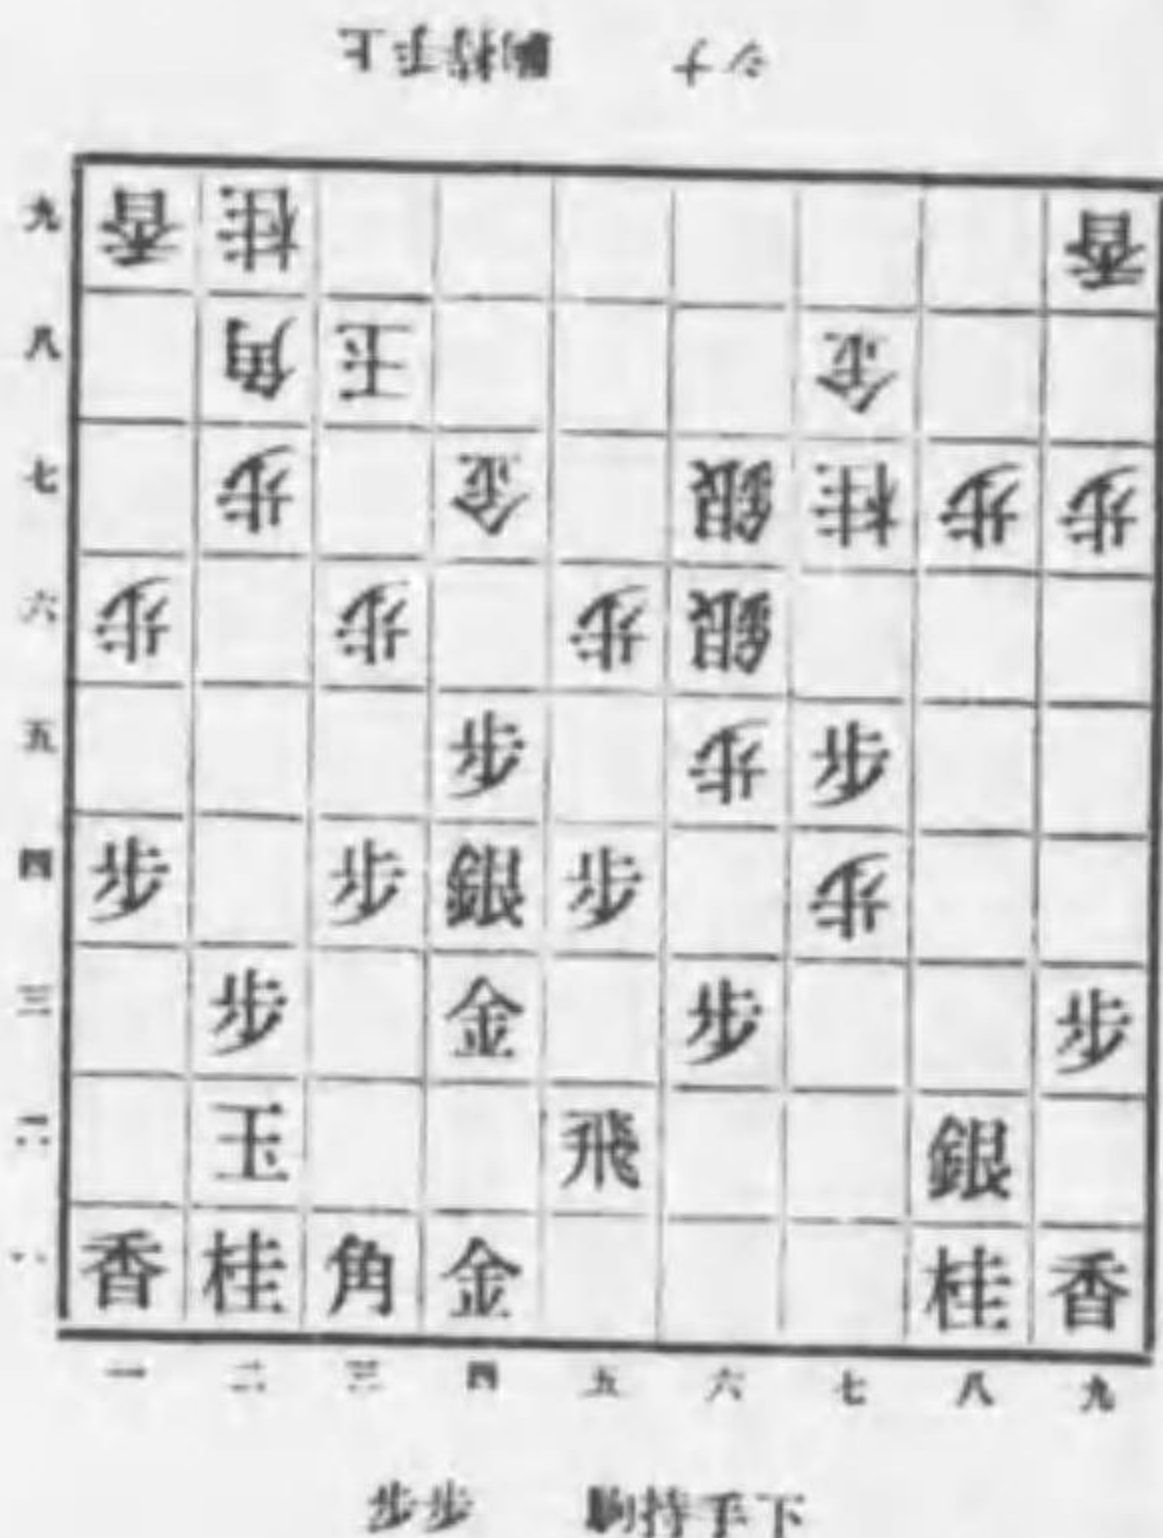 上手持駒 ナシ
九 香 桂 香
八 角 玉 金
七 歩 金 銀 桂 歩 歩
六 歩 歩 歩 銀
五 歩 歩 歩
四 歩 歩 銀 歩 歩
三 歩 金 歩 歩
二 玉 飛 銀
一 香 桂 角 金 桂 香
一 二 三 四 五 六 七 八 九
歩歩 駒持手下